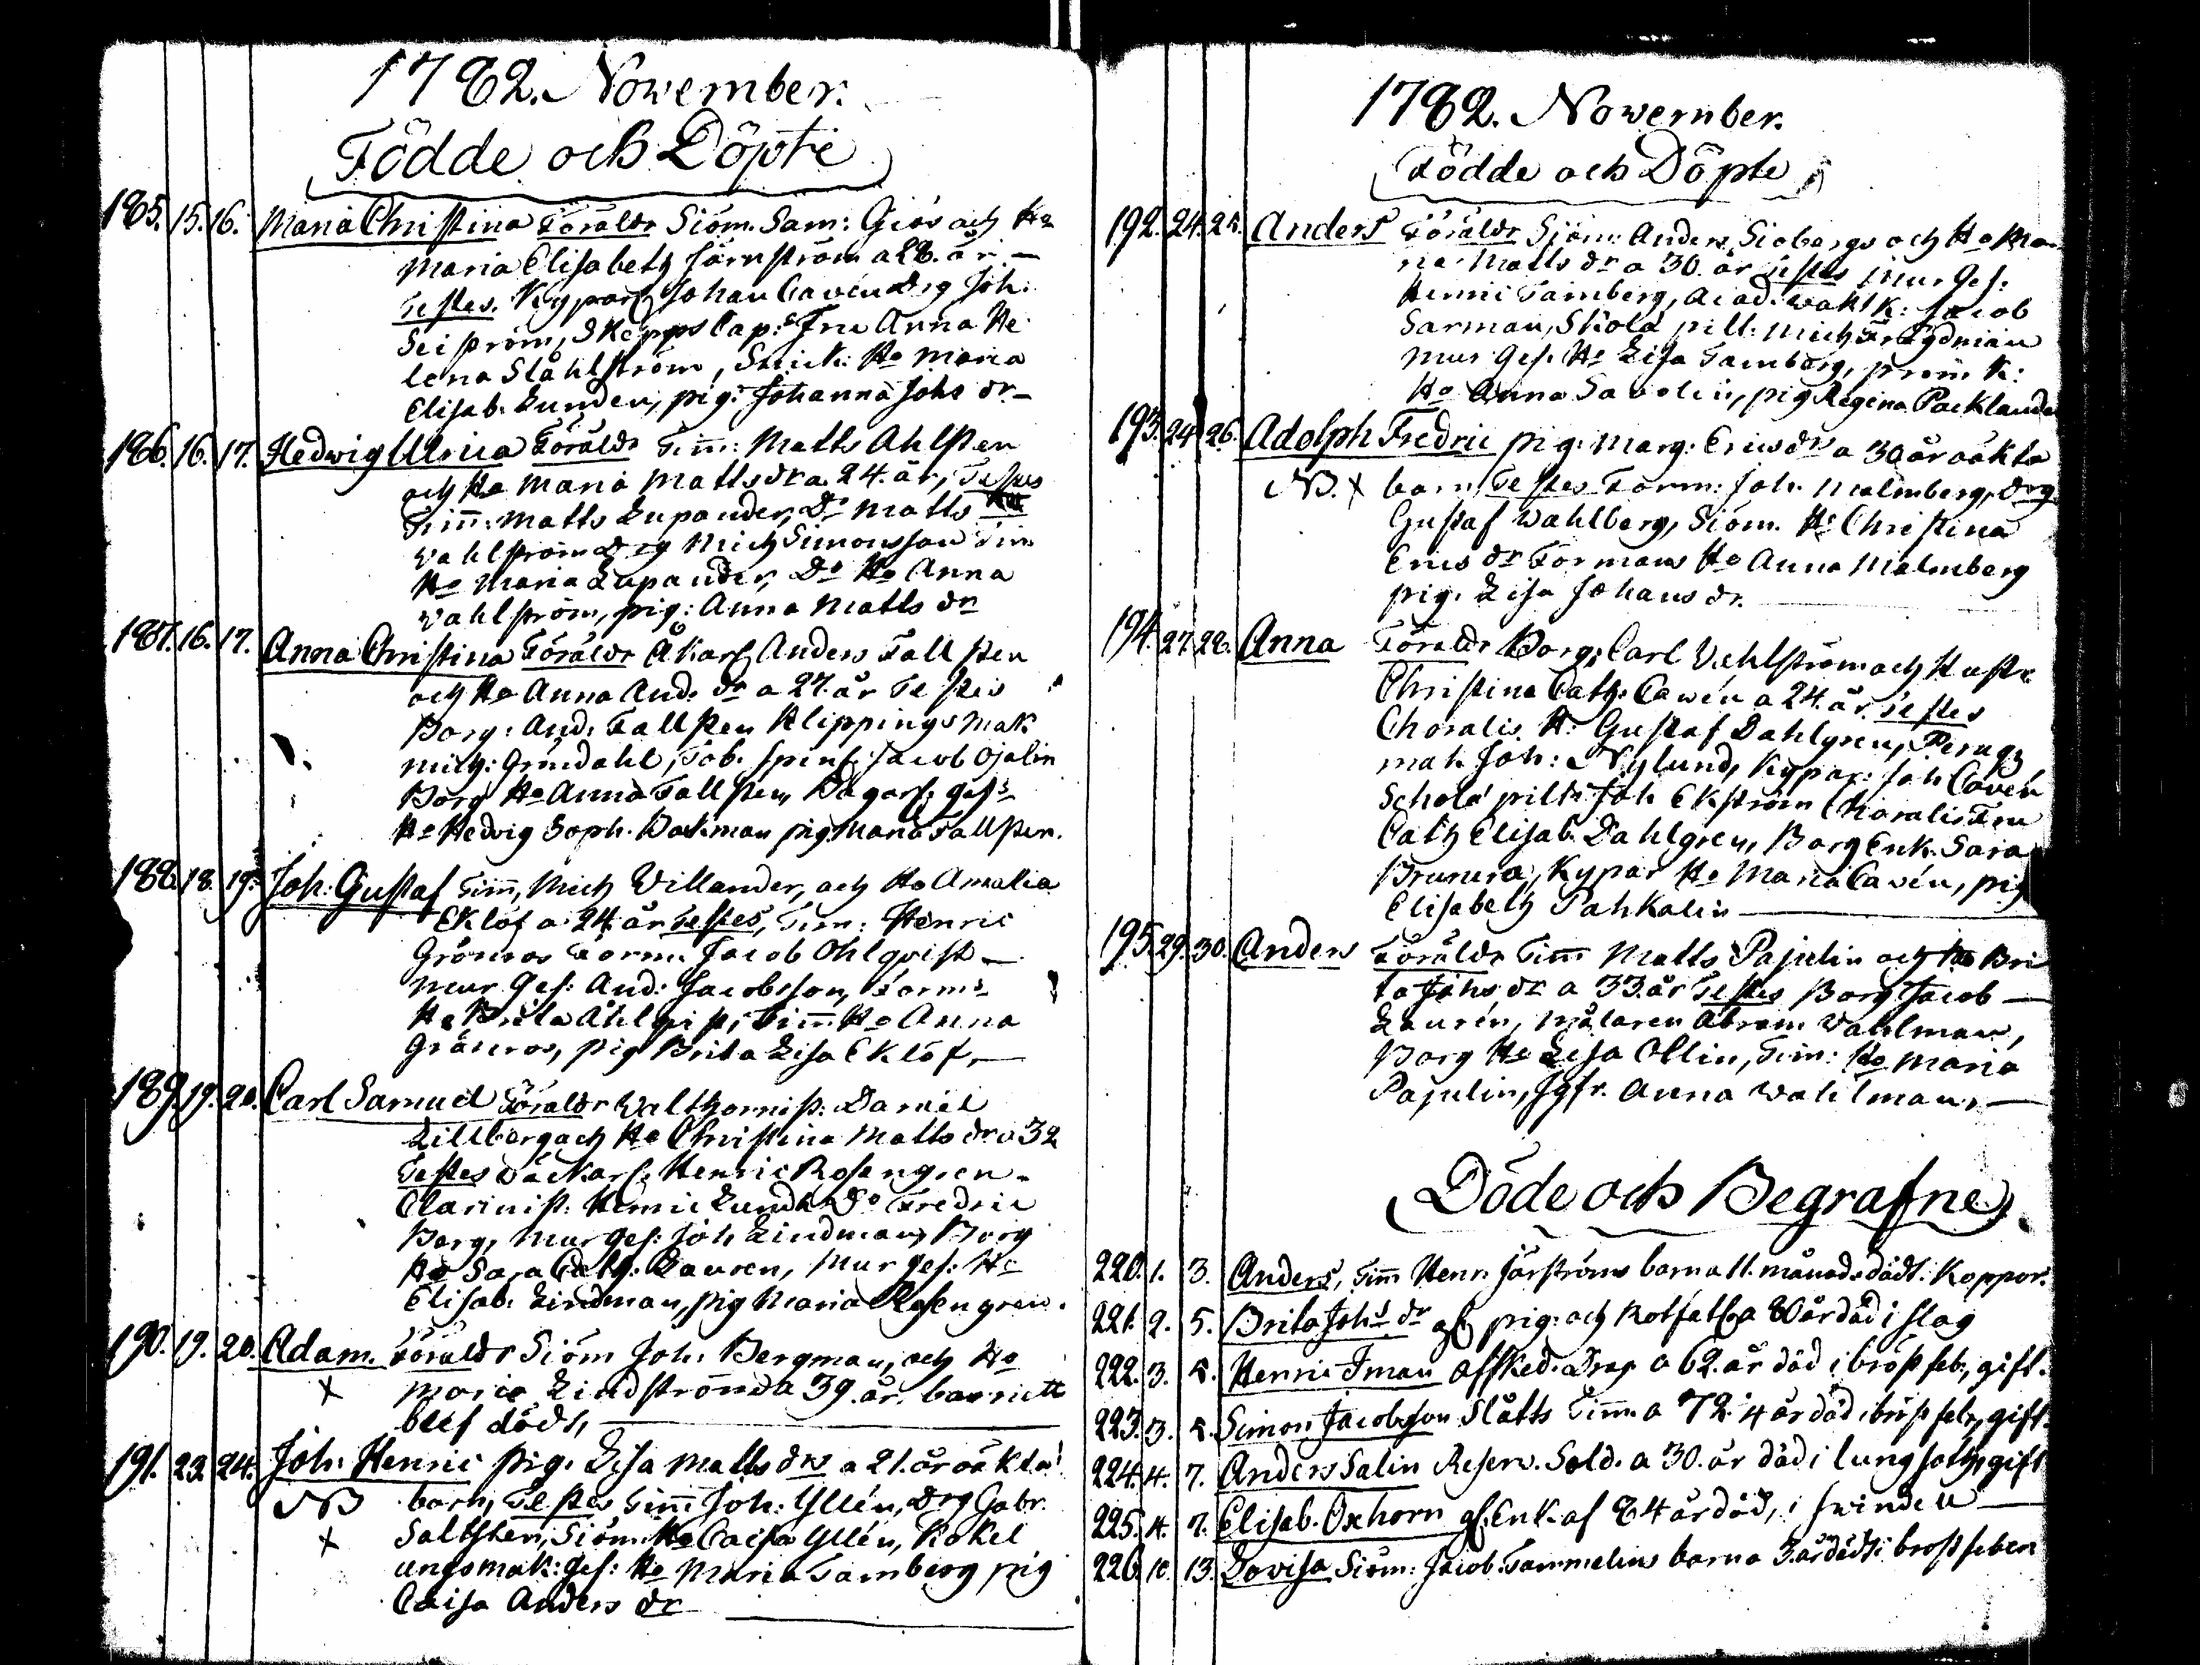 1782. November.
Födde och Döpte
185. 15. 16. Maria Christina Föräldr Siöm. Sam: Giös och Ho
Maria Elisabeth Järnström a 28. år. —
Testes. Kypars Johan Cavén Drg Joh:
Seiström, Skepps Cap:s Fru Anna He
lena Stählström, Snick: Ho Maria
Elisab. Lunden, pig: Johanna Johs dr. —
186. 16. 17. Hedwig Ulrica Föräldr Tim: Matts Ahlsten
och Ho Maria Matts dr a. 24. år, Testes
Tim: Matts Lupander, Do Matts
Vahlström Drg Mich Simonsson Tim
Ho Maria Lupander, Do Ho Anna
Vahlström, pig: Anna Matts dr
187. 16. 17. Anna Christina Föräldr Åkars Anders Fallsten
och Ho Anna And. dr a 27. år Testes
Borg: And. Fallsten Klippings mak
Mich: Gröndahl, Tob. spinf. Jacob Ojalin
Borg Ho Anna Fallsten, Bagars ges:
Ho Hedvig Soph. Backman pig Maria Fallsten.
188. 18. 19. Joh: Gustaf Tim, Mich Villander, och Ho Amalia
Eklöf a. 24. år Testes, Tim: Henric
Grönroos Form. Jacob Ohlqvist —
Mur. Ges: And: Jacobsson, Form:
Ho Brita Åhlqvist, Tim Ho Anna
Grönros, pig Brita Lisa Eklöf, —
189. 19. 20. Carl Samuel Föräldr Walthornist. Daniel
Lillberg och Ho Christina Matts dr a 32
Testes Väckars. Henric Rosengren.
Clarinist. Henric Lund Do Fredric
Borg, Mur ges: Joh Lindman, Borg
Ho Sara Cath: Lauren, Mur ges: Ho
Elisab. Lindman, pig Maria Rosengren.
190. 19. 20. Adam. Föräldr Siöm Joh. Bergman, och Ho
X Maria Lindström a 39. år. barnett
blef dödt, —
191. 23. 24. Joh. Henric pig. Lisa Matts dr a 21. år oäkta
NB barn, Testes Tim Joh: Yllén, Drg Gabr.
X Saltsten, Siöm. Ho Caisa Yllén, Kakel
ungsmak: ges: Ho Maria Tamberg pig
Caisa Anders dr
1782. November.
Födde och Döpte
192. 24. 25. Anders Föräldr Siöm: Anders Siöbergs och Ho Ma
ria Matts dr a 30. år Testes Mur Ges:
Henric Tamberg, Acad. wakt k: Jacob
Sarman, Skola pilt: Mich Frydman
Mur Ges. Ho Lisa Tamberg,
Ho Anna Savolin, pig Regina Packlander
193. 24 26. Adolph Fredric pig: Marg: Erics dr a 30 år oäkta
NB. X barn Testes Form: Joh. Malmberg, Drg
Gustaf Wahlberg, Siöm. Ho Christina
Erics dr Formans Ho Anna Malmberg
pig. Lisa Johans dr.
194. 27. 28. Anna Föräldr Borg: Carl Vehlström och Hustr
Christina Cath: Cawén a 24. år. Testes
Choralis. H: Gustaf Dahlgren, Peruq
mak Joh: Nylund, Kypar: Joh Cavén
Schola pilt: Joh Ekström Choralis Fru
Cath Elisab. Dahlgren, Borg Enk. Sara
Brunera, Kypar Ho Maria Cavén, pig
Elisabeth Pahkalin —
195. 29. 30. Anders Föräldr Tim Matts Pajulin och Ho Bri
ta Johs dr a 33. år Testes Borg Jacob —
Laurén, Målaren Abram Vahlman,
Borg Ho Lisa Ollin, Tim: Ho Maria
Pajulin, Jgfr. Anna Wahlman, —
Döde och Begrafne.
220. 1. 3. Anders, Tim Henr. Järströms barn a 11. månad. dödt. Koppor.
221. 2. 5. Brita Johs dr gl pig: och Rotfatt a 80 år död i slag
222. 3. 8. Henric Iman afsked. Drag a 62. år död i bröstfeb, gift.
223. 3. 8. Simon Jacobsson Slåtts Tim. a 72. år död i bröstfeb, gift.
224. 4. 7. Anders Salin Reserv. Sold. a 30. år död i lungsoth, gift
225. 4. 7. Elisab. Oxhorn gl. Enk. af 84 år död, i swinden —
226. 10. 13. Lovisa Siöm: Jacob. Tammelins barn a 3. år dödt: bröstfeber